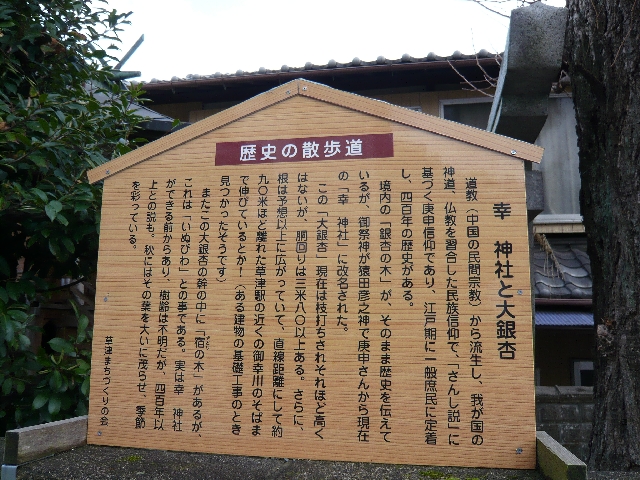 歴史の散歩道
幸　神社と大銀杏
道教（中国の民間宗教）から流生し、我が国の
神道、仏教を習合した民族信仰で、「さんし説」に
基づく庚申信仰であり、江戸期に一般庶民に定着
し、四百年の歴史がある。
境内の「銀杏の木」が、そのまま歴史を伝えて
いるが、御祭神が猿田彦之神で庚申さんから現在
の「幸　神社」に改名された。
この「大銀杏」現在は枝打ちされそれほど高く
はないが、胴回りは三米八〇以上ある。さらに、
根は予想以上に広がっていて、直線距離にして約
九〇米ほど離れた草津駅の近くの御幸川のそばま
で伸びているとか！（ある建物の基礎工事のとき
見つかったそうです）
またこの大銀杏の幹の中に「宿の木」があるが、
これは「いぬびわ」との事である。実は幸　神社
ができる前からあり、樹齢は不明だが、四百年以
上との説も。秋にはその葉を大いに茂らせ、季節
を彩っている。
草津まちづくりの会